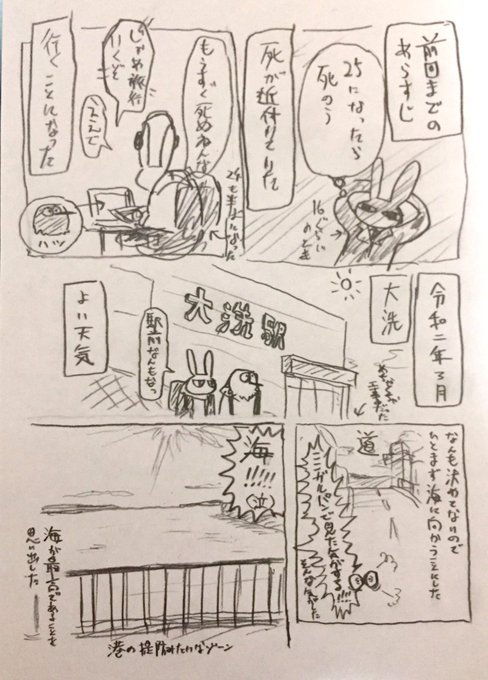 前回までの
あらすじ
25になったら
死のう
16ぐらい
のとき
死が近付いていた
もうすぐ死ぬねんな
じゃあ旅行
いくぞ
ええで
ハツ
24も半ばになった
行くことになった
令和二年3月
大洗
大洗駅
駅前なんもなっ
よい天気
なんも決めてないので
ひとまず海に向かうことにした
道
ここガルパンで見た気がする!!!
そんな気がした
海
!!!!!
(泣)
海が最高であることを
思い出した
港の堤防みたいなゾーン